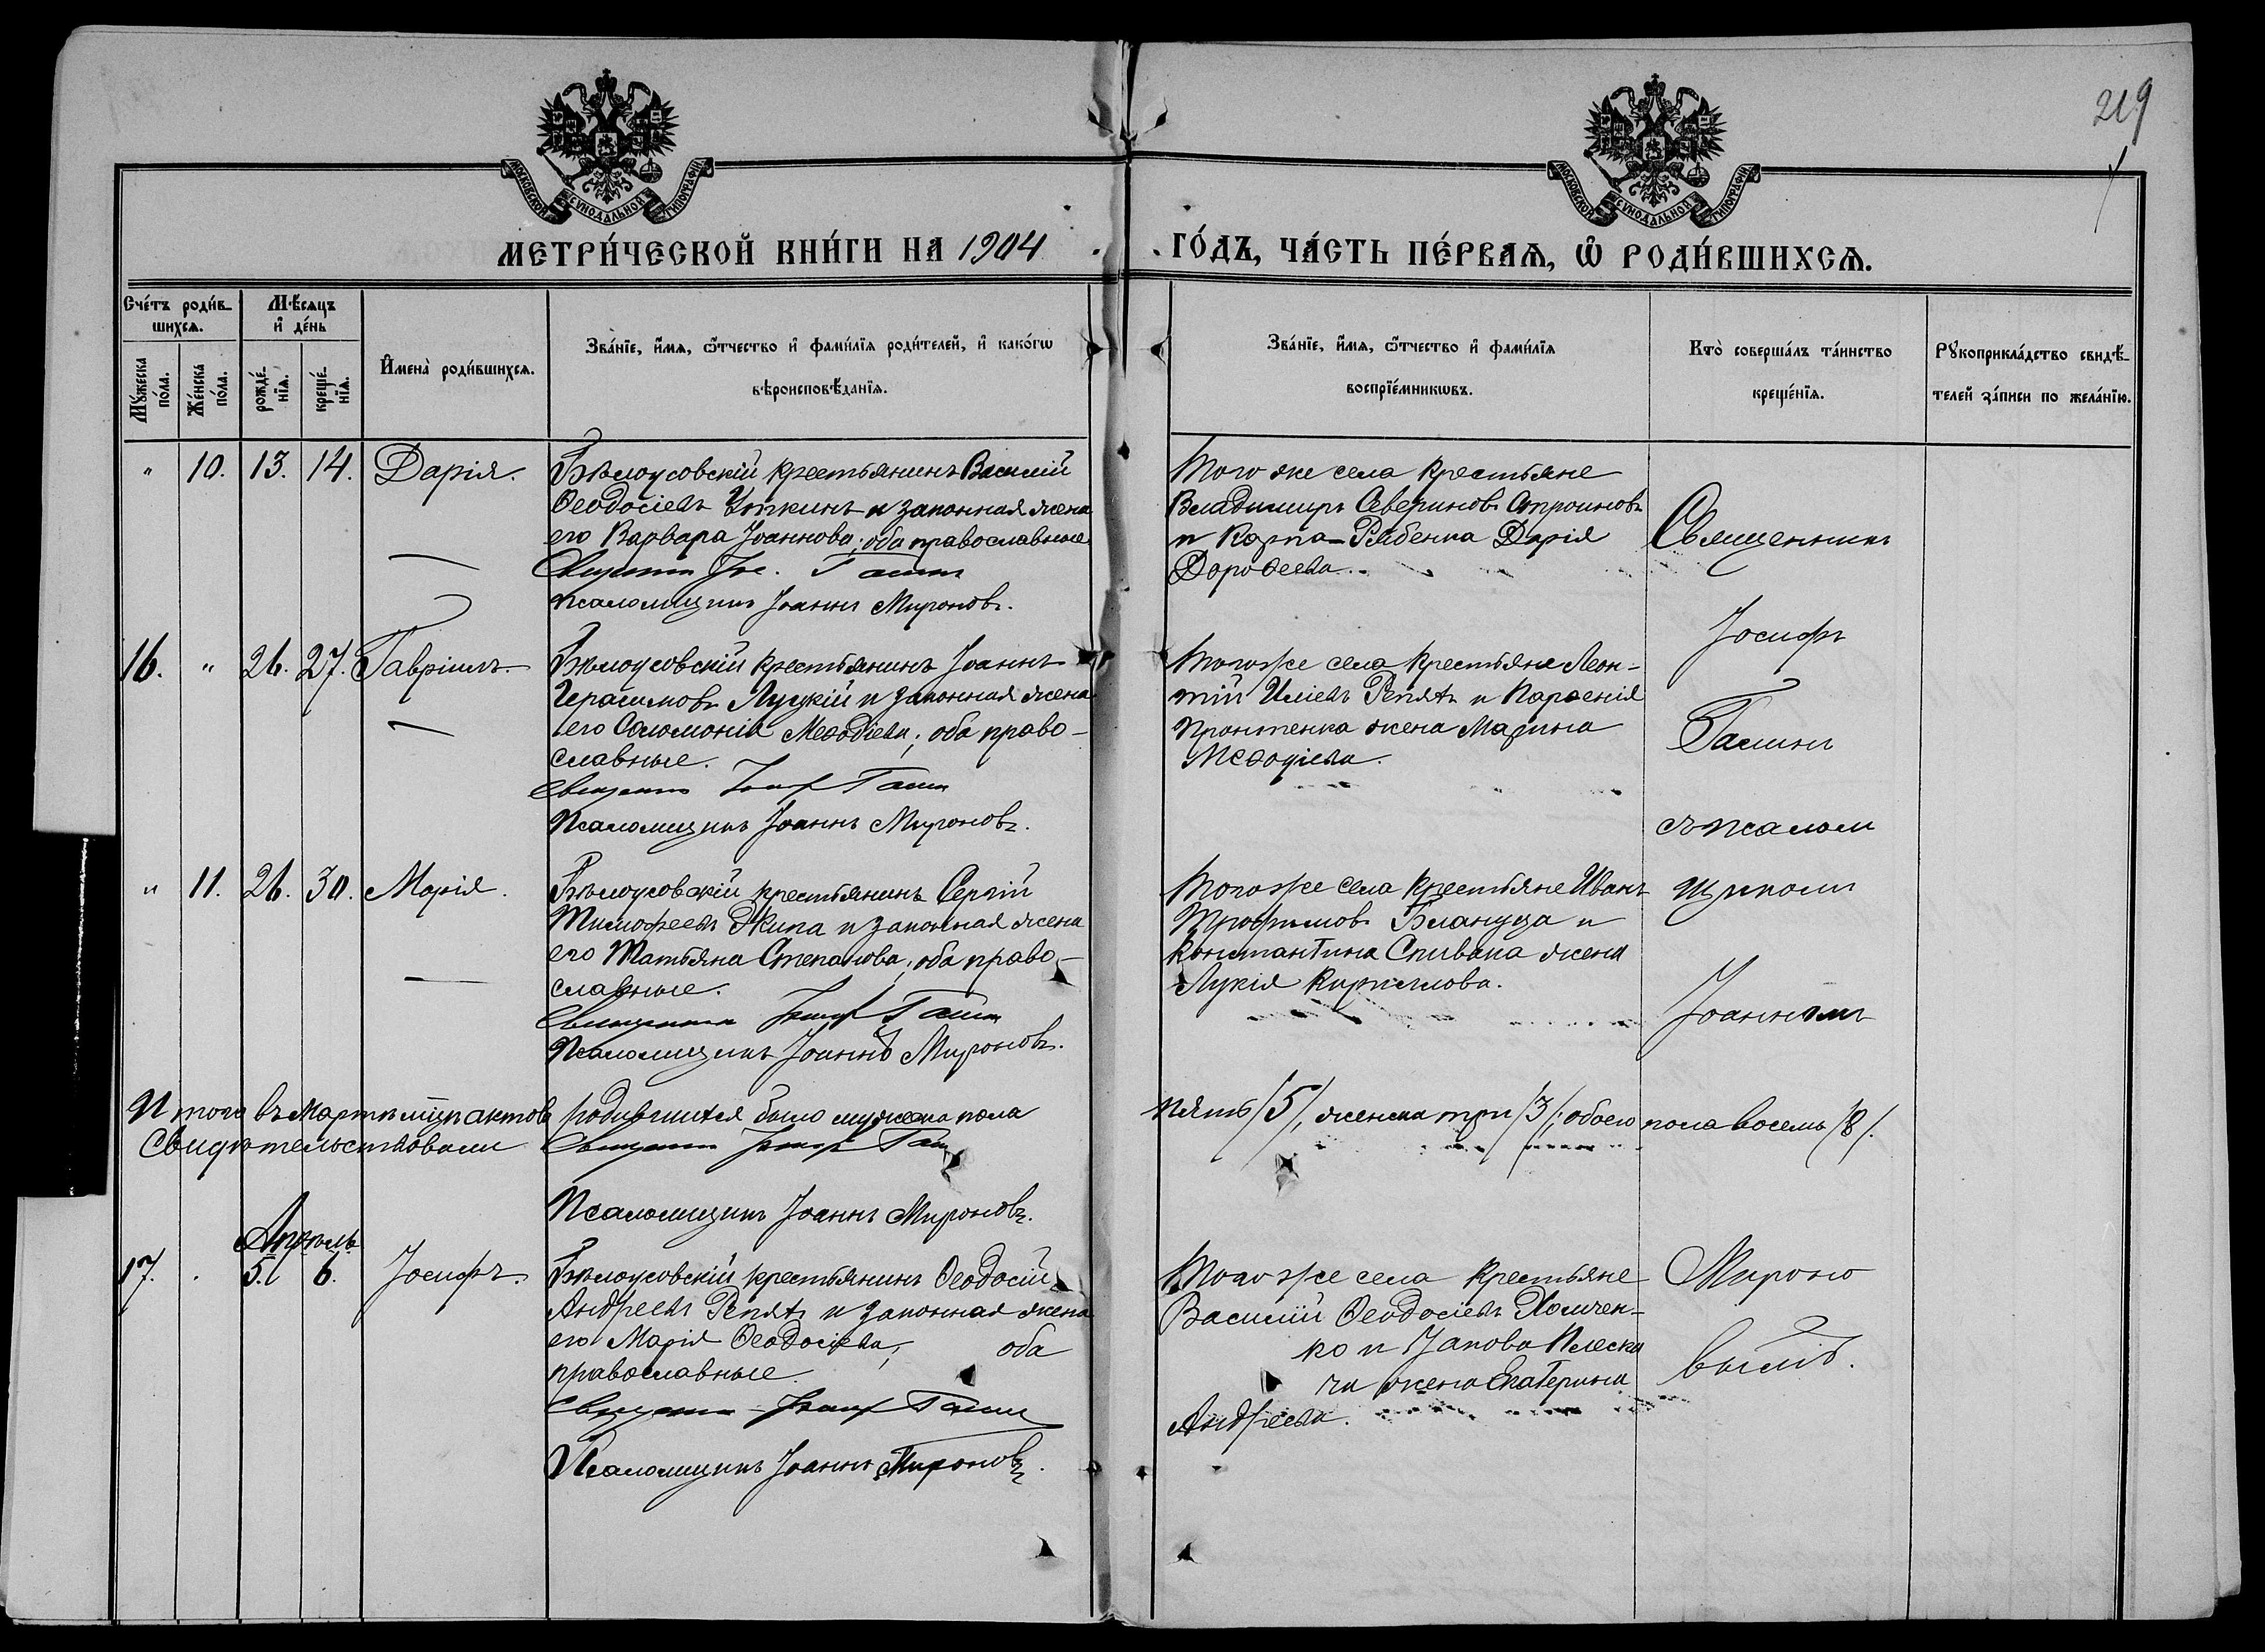 219
МОСКОВСКОЙ СУНОДАЛЬНОЙ ТИПОГРАФІИ
МОСКОВСКОЙ СУНОДАЛЬНОЙ ТИПОГРАФІИ
МЕТРИ́ЧЕСКОЙ КНИ́ГИ НА 1904
ГО́ДЪ, ЧА́СТЬ ПЕ́РВАѦ, Ѡ҆ РОДИ́ВШИХСѦ.
Сче́тъ роди́в-
шихсѧ.
Мѣ́сѧцъ
и҆ де́нь
Мꙋ́жеска
по́ла.
Же́нска
по́ла.
рожде́-
нїѧ.
креще́-
нїѧ.
И҆мена̀ роди́вшихсѧ.
Зва́нїе, и҆́мѧ, ѻ҆́тчество и҆ фами́лїѧ роди́телей, и҆ како́гѡ
вѣроисповѣ́данїѧ.
Зва́нїе, и҆́мѧ, ѻ҆́тчество и҆ фами́лїѧ
воспрїе́мникѡвъ.
Кто̀ соверша́лъ та́инство
креще́нїѧ.
Рꙋкоприкла́дство свидѣ́-
телей за́писи по жела́нїю.
" 10. 13. 14. Дарія.
Бѣлоусовскій крестьянинъ Василій
Ѳеодосіевъ Уткинъ и законная жена
его Варвара Іоаннова; оба православные
Священникъ Іос. Галинъ
псаломщикъ Іоаннъ Мироновъ.
Того же села крестьяне
Владимиръ Севериновъ
и Карпа Рябенка Дарія
Дороѳеева.
16. " 26. 27. Гавріилъ.
Бѣлоусовскій крестьянинъ Іоаннъ
Герасимовъ Луцкій и законная жена
его Соломонія Меѳодіева; оба право-
славные.
Священникъ Іосифъ Галинъ
Псаломщикъ Іоаннъ Мироновъ.
Того же села крестьяне Леон-
тій Иліевъ Репята и Парѳенія
жена Марина
Меѳодіева.
" 11. 26. 30. Марія.
Бѣлоусовскій крестьянинъ Сергій
Тимоѳеевъ и законная жена
его Татьяна Степанова; оба право-
славные.
Священникъ Іосифъ Галинъ
Псаломщикъ Іоаннъ Мироновъ.
Того же села крестьяне Иванъ
Трофимовъ Блануца и
Константина Спивака жена
Лукія Кириллова.
Итого въ Мартѣ мцѣ актовъ родившихся было мужеска пола
пять /5/, женска три /3/; обоего пола восемь /8/.
Свидѣтельствовали Священникъ Іосифъ Галинъ
Псаломщикъ Іоаннъ Мироновъ.
Апрѣль
17. 5. 6. Іосифъ.
Бѣлоусовскій крестьянинъ Ѳеодосій
Андреевъ Репята и законная жена
его Марія Ѳеодосіева; оба
православные.
Священникъ Іосифъ Галинъ
Псаломщикъ Іоаннъ Мироновъ.
Того же села крестьяне
Василій Ѳеодосіевъ Хомчен-
ко и Іакова Плеска
ча жена Екатерина
Андреева.
Священникъ
Іосифъ
Галинъ
съ псалом
щикомъ
Іоанномъ
Мироно
вымъ.